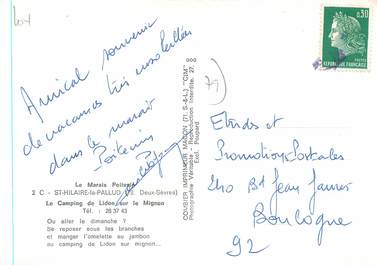 Amical souvenir
de vacances très ensoleillées
dans le marais
Poitevin
Le Marais Poitevin
2 C - ST-HILAIRE-la-PALLUD (79. Deux-Sèvres)
Le Camping de Lidon, sur le Mignon
Tél. : 26 37 43
Ou aller le dimanche ?
Se reposer sous les branches
et manger l'omelette au jambon
au camping de Lidon sur mignon...
COMBIER IMPRIMEUR MACON (71. S.-&-L.) "CIM"
Photographie Véritable - Reproduction Interdite. 27.
Excl. Poupard
0,30
POSTES
REPUBLIQUE FRANÇAISE
Etudes et
Promotions Postales
240 Bd Jean Jaurès
Boulogne
92